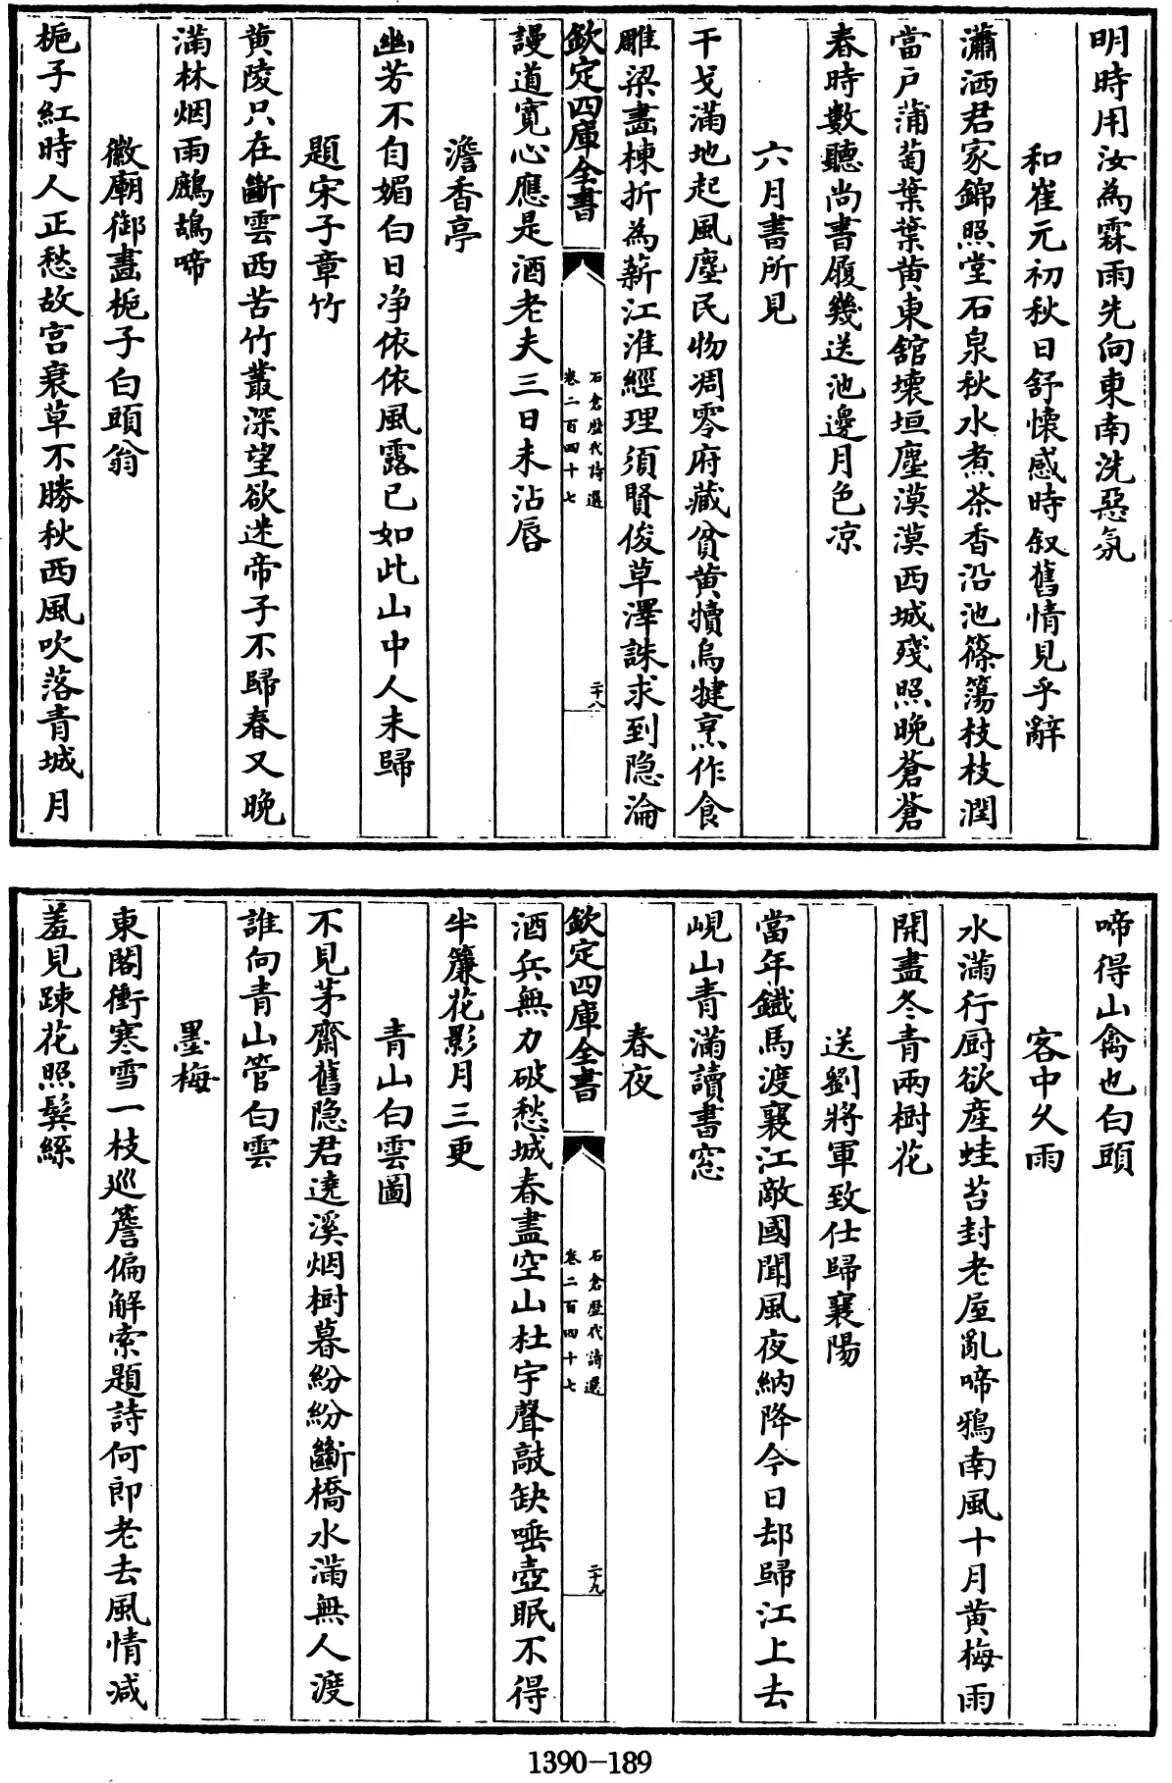 明時用汝為霖雨先向東南洗惡氛
和崔元初秋日舒懐感時叙舊情見乎辭
瀟洒君家錦照堂石泉秋水煮茶香沿池篠簜枝枝潤
當戸蒲萄葉葉黄東舘壊垣塵漠漠西城殘照晚蒼蒼
春時數聽尚書履幾送池邊月色凉
六月書所見
干戈滿地起風塵民物凋零府藏貧黄犢烏犍烹作食
雕梁畫棟折為薪江淮經理須賢俊草澤誅求到隐淪
欽定四庫全書
石倉歴代詩選
卷二百四十七
二十八
謾道寛心應是酒老夫三日未沾唇
澹香亭
幽芳不自媚白日净依依風露已如此山中人未歸
題宋子章竹
黄陵只在斷雲西苦竹叢深望欲迷帝子不歸春又晚
滿林烟雨鷓鴣啼
徽廟御畫梔子白頭翁
梔子紅時人正愁故宫衰草不勝秋西風吹落青城月
啼得山禽也白頭
客中久雨
水滿行厨欲産蛙苔封老屋亂啼鴉南風十月黄梅雨
開盡冬青兩樹花
送劉將軍致仕歸襄陽
當年鐵馬渡襄江敵國聞風夜納降今日却歸江上去
峴山青滿讀書窓
春夜
欽定四庫全書
石倉歴代詩選
卷二百四十七
二十九
酒兵無力破愁城春盡空山杜宇聲敲缺唾壺眠不得
半簾花影月三更
青山白雲圖
不見茅齋舊隐君遶溪烟樹暮紛紛斷橋水滿無人渡
誰向青山管白雲
墨梅
東閣衝寒雪一枝巡簷偏解索題詩何郎老去風情减
羞見踈花照鬂絲
1390-189